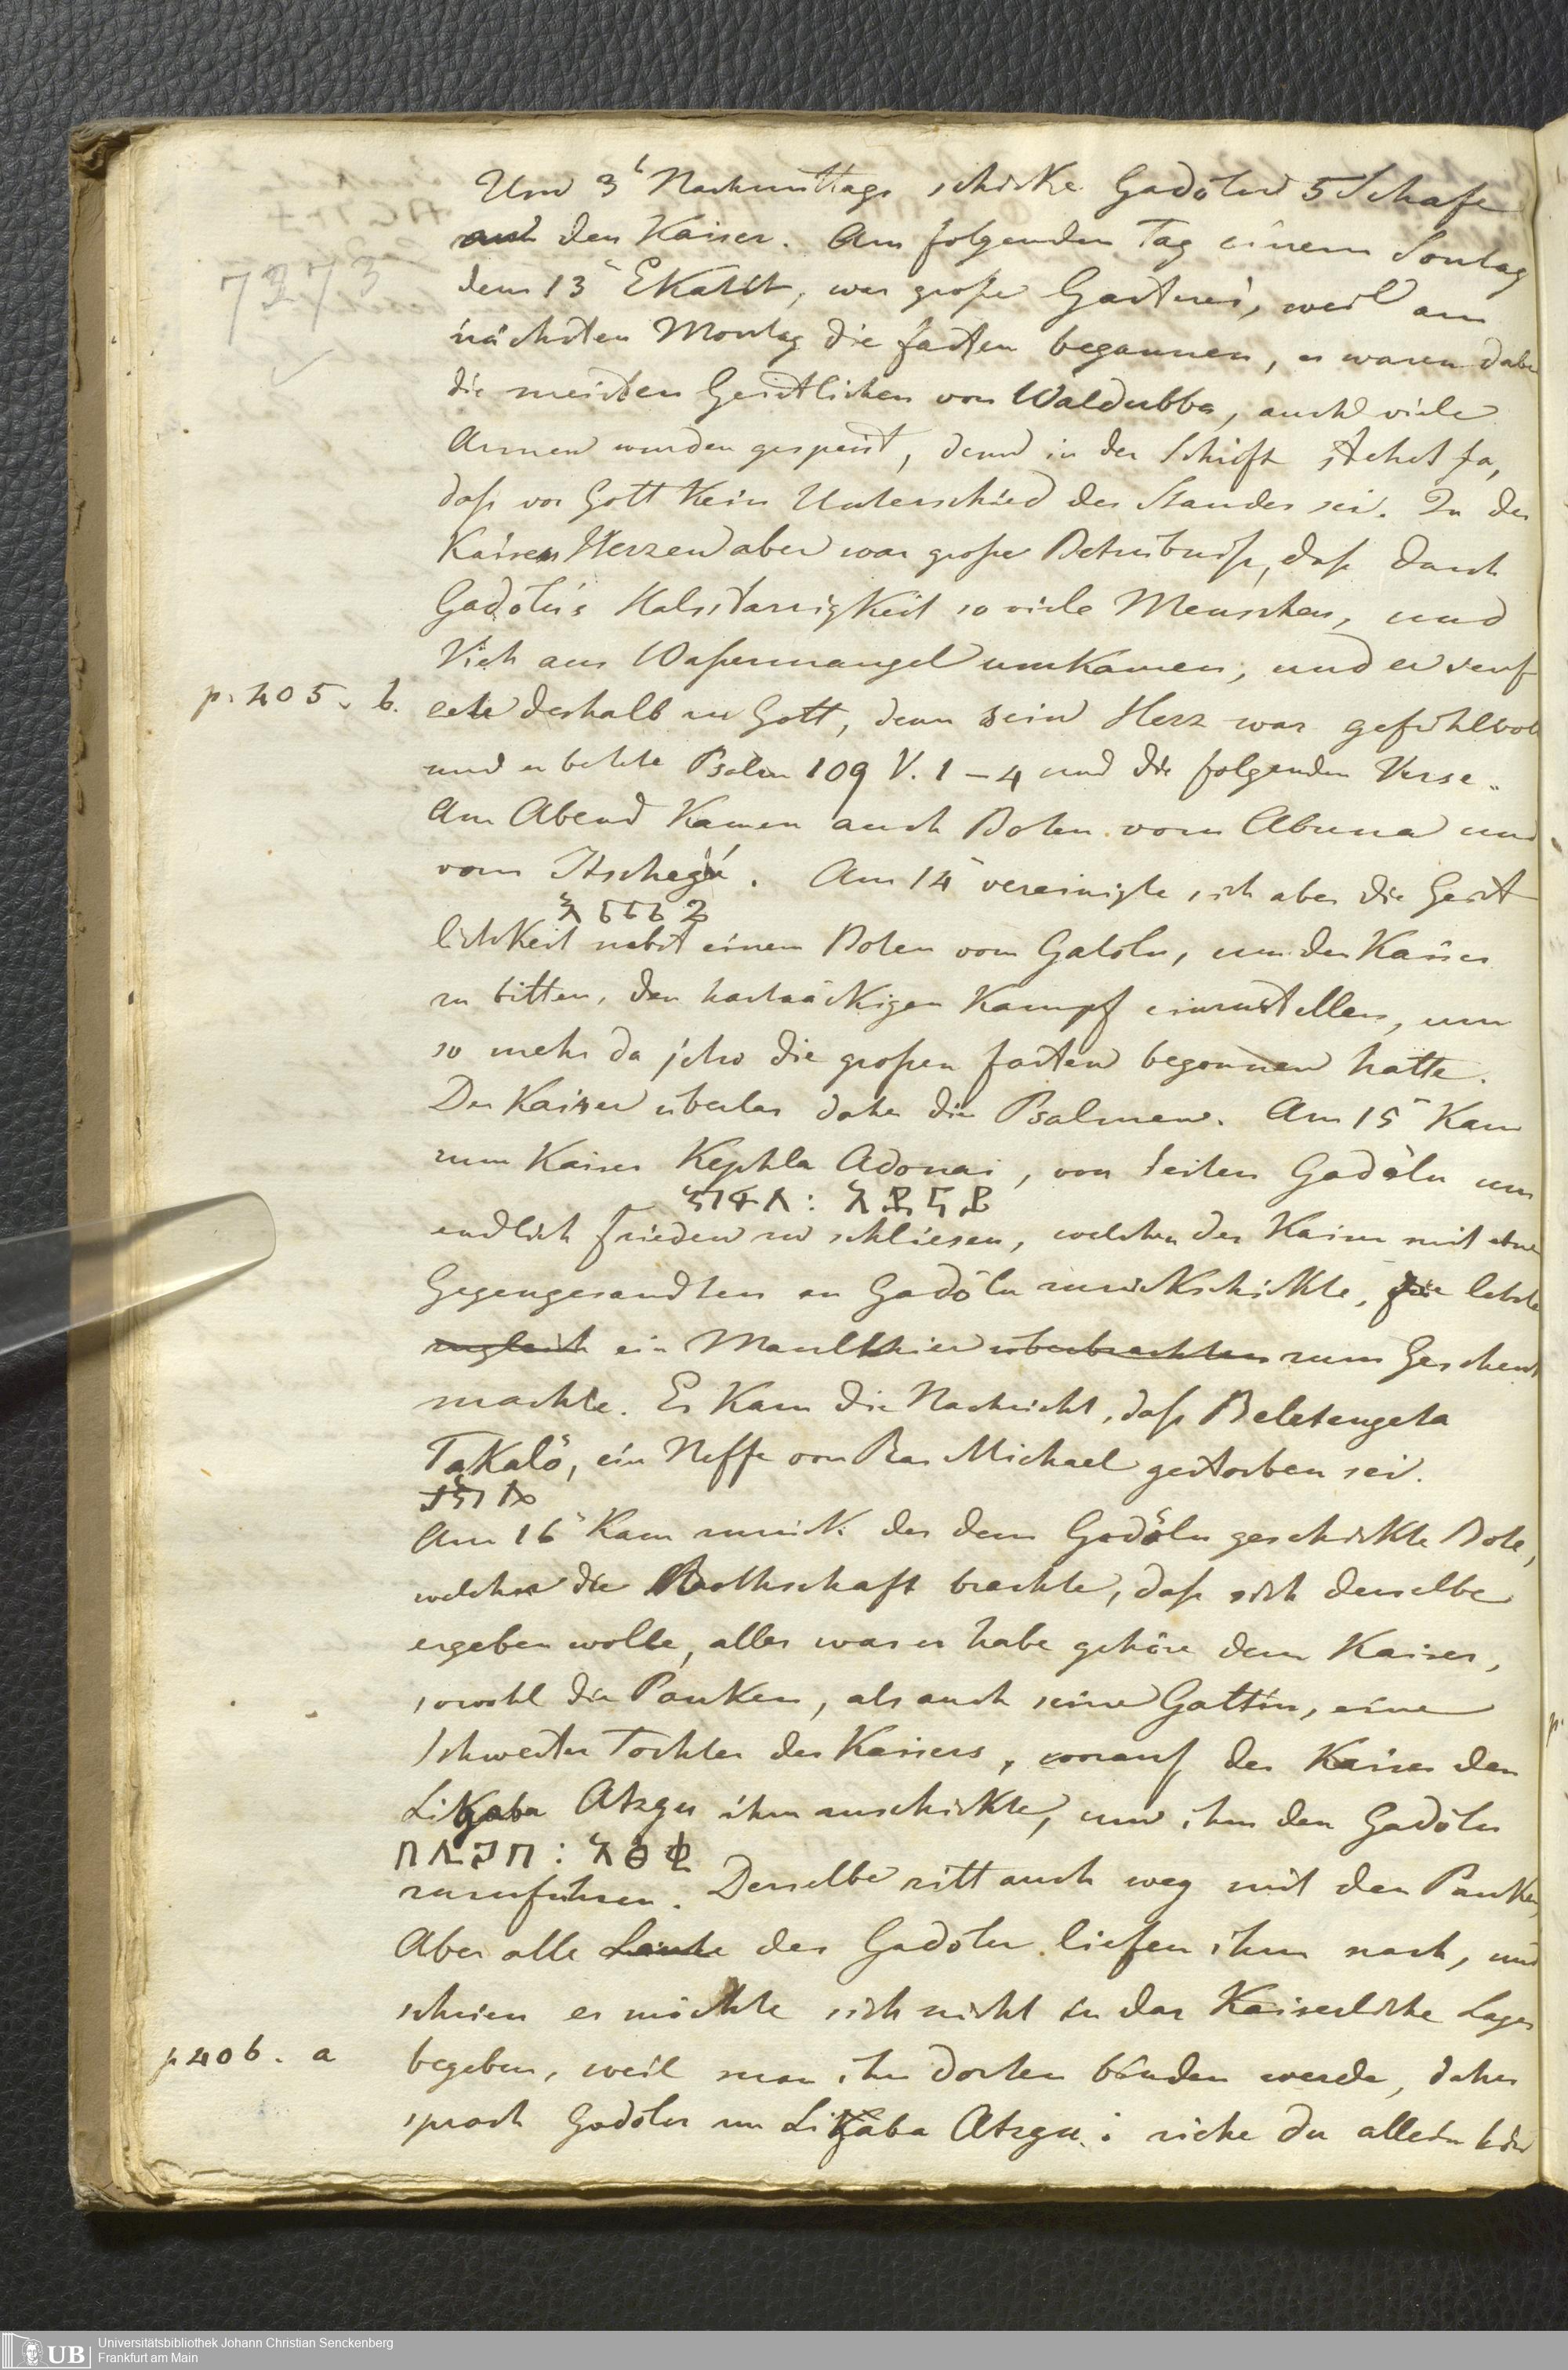 Um 3 Nachmittags schickte Gadölu 5 Schafe
den Kaiser. Am folgenden Tag einem Sontag
dem 13 Ekatit, war große Gasterei, weil am
7273
nächsten Montag die Fasten begannen, es waren dabei
die meisten Geistlichen von Waldubba, auch viele
Armen wurden gespeist, denn in der Schrift stehet ja,
daß vor Gott kein Unterschied des Standes sei. In des
Kaisers Herzen aber war große Betrübniß, daß durch
Gadölu's Halsstarrigkeit so viele Menschen, und
Vieh aus Waßermangel umkamen, und er seuf
p. 405. b. zete deshalb zu Gott, denn sein Herz war gefühlvoll
und er betete Psalm 109 V. 1–4 und die folgenden Verse.
Am Abend kamen auch Boten vom Abuna und
vom Itschegé. Am 14 vereinigte sich aber die Geist
lichkeit nebst einem Boten vom Gadölu, um den Kaiser
zu bitten, den hartnäckigen Kampf einzustellen, um
so mehr da jetzo die großen Fasten begonnen hatte.
Der Kaiser überlas daher die Psalmen. Am 15 kam
zum Kaiser Kephla Adonai, von Seiten Gadölu um
ክፍለ : አዶናይ
endlich Frieden zu schliesen, welchen der Kaiser mit einem
Gegengesandten an Gadölu zurückschickte, die letzte
zugleich ein Maulthier überbrachten zum Geschenk
machte. Es kam die Nachricht, daß Beletengeta
Takalö, ein Neffe von Ras Michael gestorben sei.
Am 16 kam zurück der dem Gadölu geschickte Bote,
welcher die Bothschaft brachte, daß sich derselbe
ergeben wolle, alles was er habe gehöre dem Kaiser,
sowohl die Pauken, als auch seine Gattin, eine
Schwester Tochter des Kaisers, worauf der Kaiser den
Likaba Atzgu ihm zuschickte, um ihm den Gadölu
zuzuführen. Derselbe ritt auch weg mit den Pauken,
Aber alle Leute des Gadölu liefen ihm nach, und
schrien er möchte sich nicht in das Kaiserliche Lager
p 406. a begeben, weil man ihn dorten binden werde, daher
sprach Gadölu zu Likaba Atzgu: ziehe du allein hin
UB Universitätsbibliothek Johann Christian Senckenberg
Frankfurt am Main